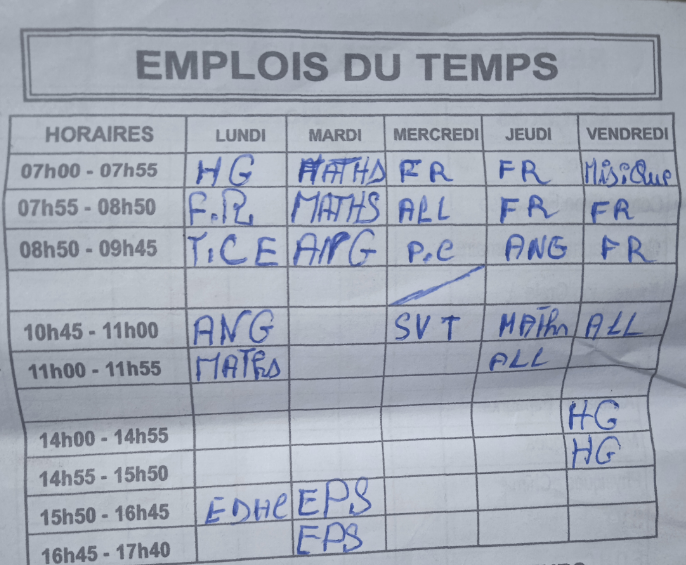 EMPLOIS DU TEMPS
HORAIRES LUNDI MARDI MERCREDI JEUDI VENDREDI
07h00 - 07h55 HG MATHS FR FR Misique
07h55 - 08h50 F.R. MATHS ALL FR FR
08h50 - 09h45 T.CE ANG P.C ANG FR
10h45 - 11h00 ANG SVT MATHs ALL
11h00 - 11h55 MATHs ALL
14h00 - 14h55 HG
14h55 - 15h50 HG
15h50 - 16h45 EDHC EPS
16h45 - 17h40 EPS